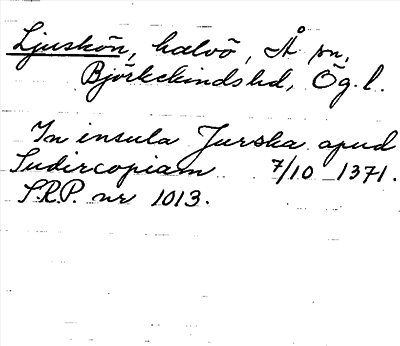 Ljuskön, halvö, Å sn,
Björkekindshd, Ög. l.
In insula Jurska apud
Sudircopiam 7/10 1371.
S.R.P. nr 1013.